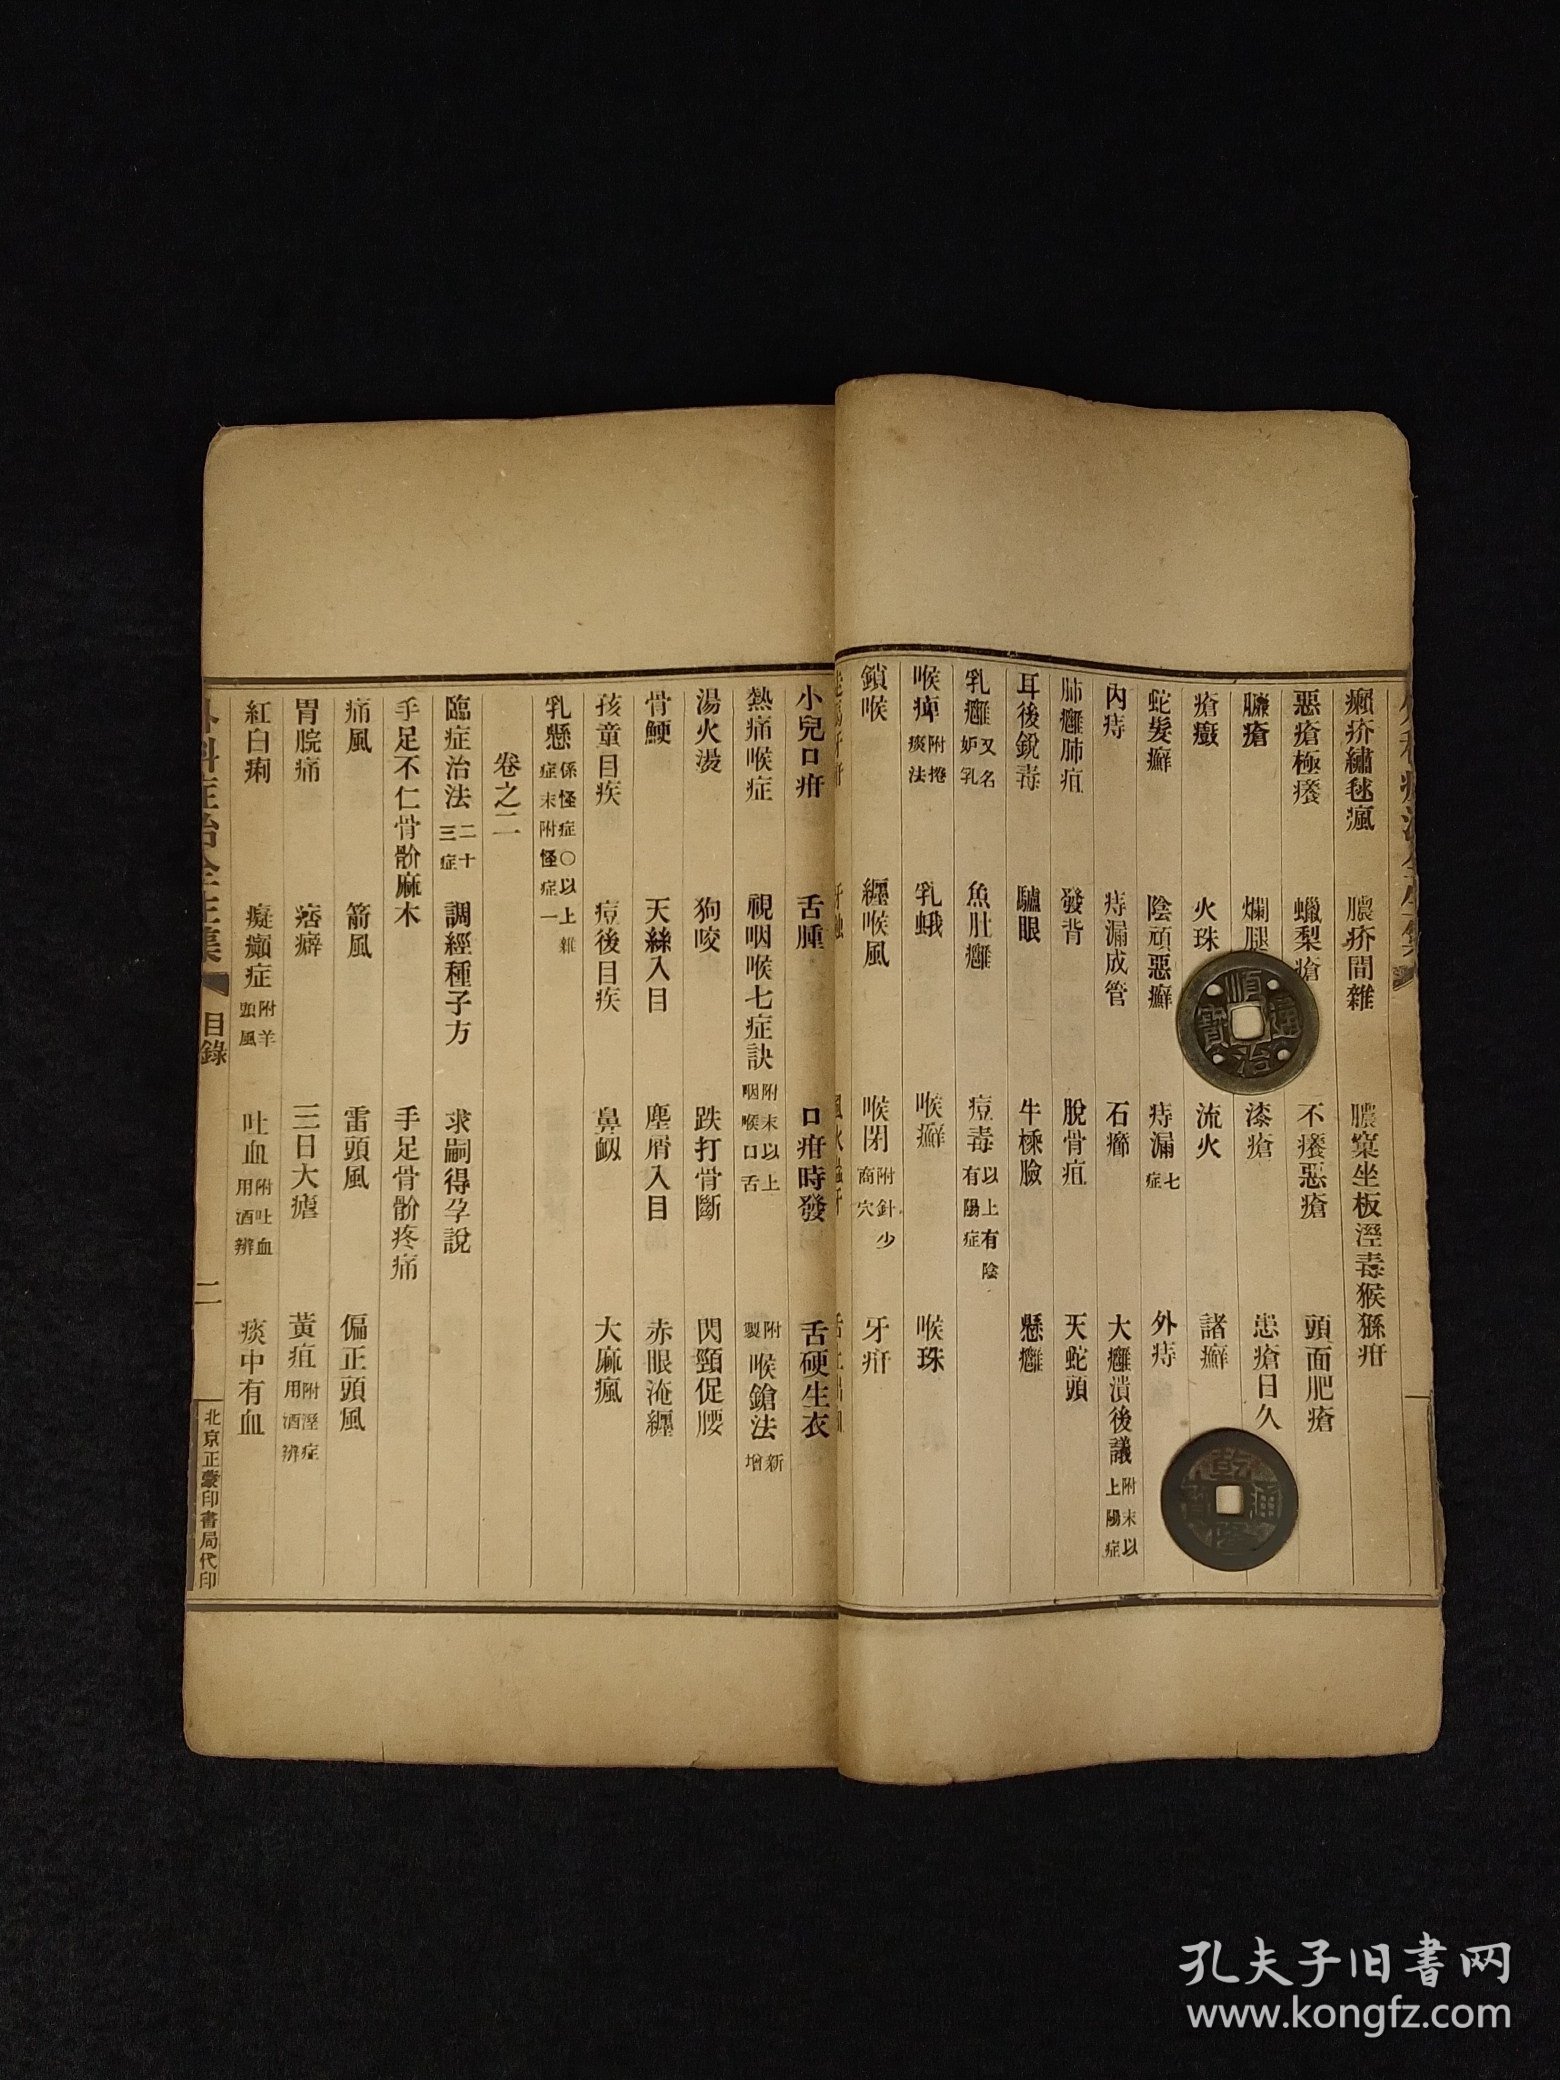 癩疥繡毬瘋 膿疥間雜 膿窠坐板溼毒猴猻疳
惡瘡極癢 蠟梨瘡 不癢惡瘡 頭面肥瘡
臁瘡 爛腿 漆瘡 患瘡日久
瘡癤 火珠 流火 諸癬
蛇髮癬 陰頑惡癬 痔漏七症 外痔
內痔 痔漏成管 石癤 大癰潰後議附末以上陽症
肺癰肺疽 發背 脫骨疽 天蛇頭
耳後銳毒 驢眼 牛㮔臉 懸癰
乳癰又名妒乳 魚肚癰 痘毒以上有陰有陽症
喉痺附捲痰法 乳蛾 喉癬 喉珠
鎖喉 纏喉風 喉閉附針少商穴 牙疳
小兒口疳 舌腫 口疳時發 舌硬生衣
熱痛喉症 視咽喉七症訣附末以上咽喉口舌 附製喉鎗法新增
湯火燙 狗咬 跌打骨斷 閃頸促腰
骨鯁 天絲入目 塵屑入目 赤眼淹纏
孩童目疾 痘後目疾 鼻衄 大麻瘋
乳懸係怪症〇以上雜症末附怪症一
卷之二
臨症治法二十三症 調經種子方 求嗣得孕說
手足不仁骨骱麻木 手足骨骱疼痛
痛風 箭風 雷頭風 偏正頭風
胃脘痛 痞癖 三日大瘧 黃疸附溼症用酒辨
紅白痢 癡癲症附羊頭風 吐血附吐血用酒辨 痰中有血
外科症治全生集 目錄 二 北京正蒙印書局代印
順治通寶
乾隆通
孔夫子旧书网
www.kongfz.com